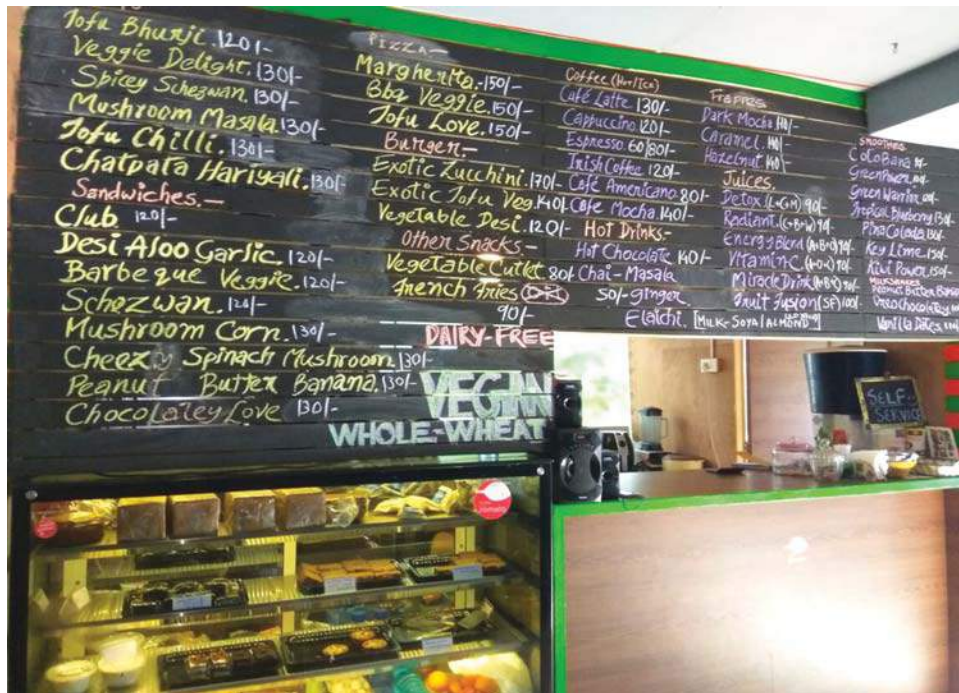 Tofu Bhurji. 120/-
Veggie Delight. 130/-
Spicey Schezwan. 130/-
Mushroom Masala. 130/-
Tofu Chilli. 130/-
Chatpata Hariyali. 130/-
Sandwiches.-
Club 120/-
Desi Aloo Garlic. 120/-
Barbeque Veggie. 120/-
Schezwan. 120/-
Mushroom Corn. 130/-
Cheezy Spinach Mushroom 130/-
Peanut Butter Banana. 130/-
Chocolatey Love 130/-
PIZZA-
Margherita. 150/-
Bbq Veggie. 150/-
Tofu Love. 150/-
Burger.-
Exotic Zucchini. 170/-
Exotic Tofu Veg. 140/-
Vegetable Desi. 120/-
Other Snacks-
Vegetable Cutlet 80/-
French Fries
90/-
DAIRY-FREE
VEGAN
WHOLE-WHEAT
Coffee (Hot/Ice)
Café Latte 130/-
Cappuccino. 120/-
Espresso. 60/80/-
Irish Coffee 120/-
Café Americano. 80/-
Cafe Mocha. 140/-
Hot Drinks-
Hot Chocolate 140/-
Chai-Masala
50/- ginger
Elaichi. [MILK-SOYA/ALMOND]
Frappes
Dark Mocha 140/-
Caramel. 140/-
Hazelnut 140/-
Juices.
Detox 90/-
Radiant 90/-
Energy Blend
Vitamin C.
Miracle Drink
Fruit Fusion (SF) 100/-
SMOOTHIES
CoCoBana
Green Power
Green Warrior
Tropical Blueberry 130/-
PinaColada. 130/-
Key Lime. 150/-
Kiwi Power. 150/-
MILKSHAKES
Peanut Butter
Vanilla Dates.
SELF
SERVICE
zomato